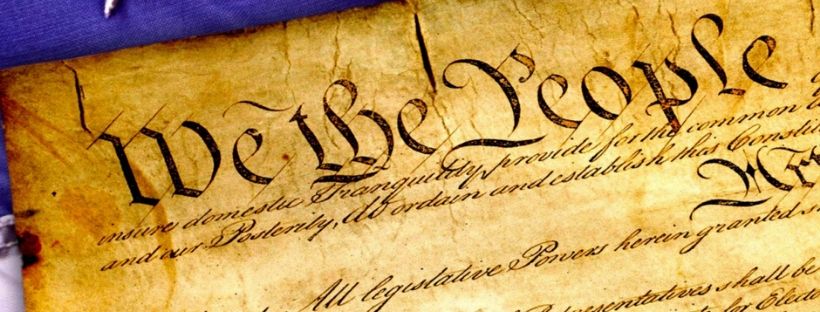 We the People
insure domestic Tranquility, provide for the common
and our Posterity, do ordain and establish this Consti
All legislative Powers herein granted
Representatives shall be
for Electo